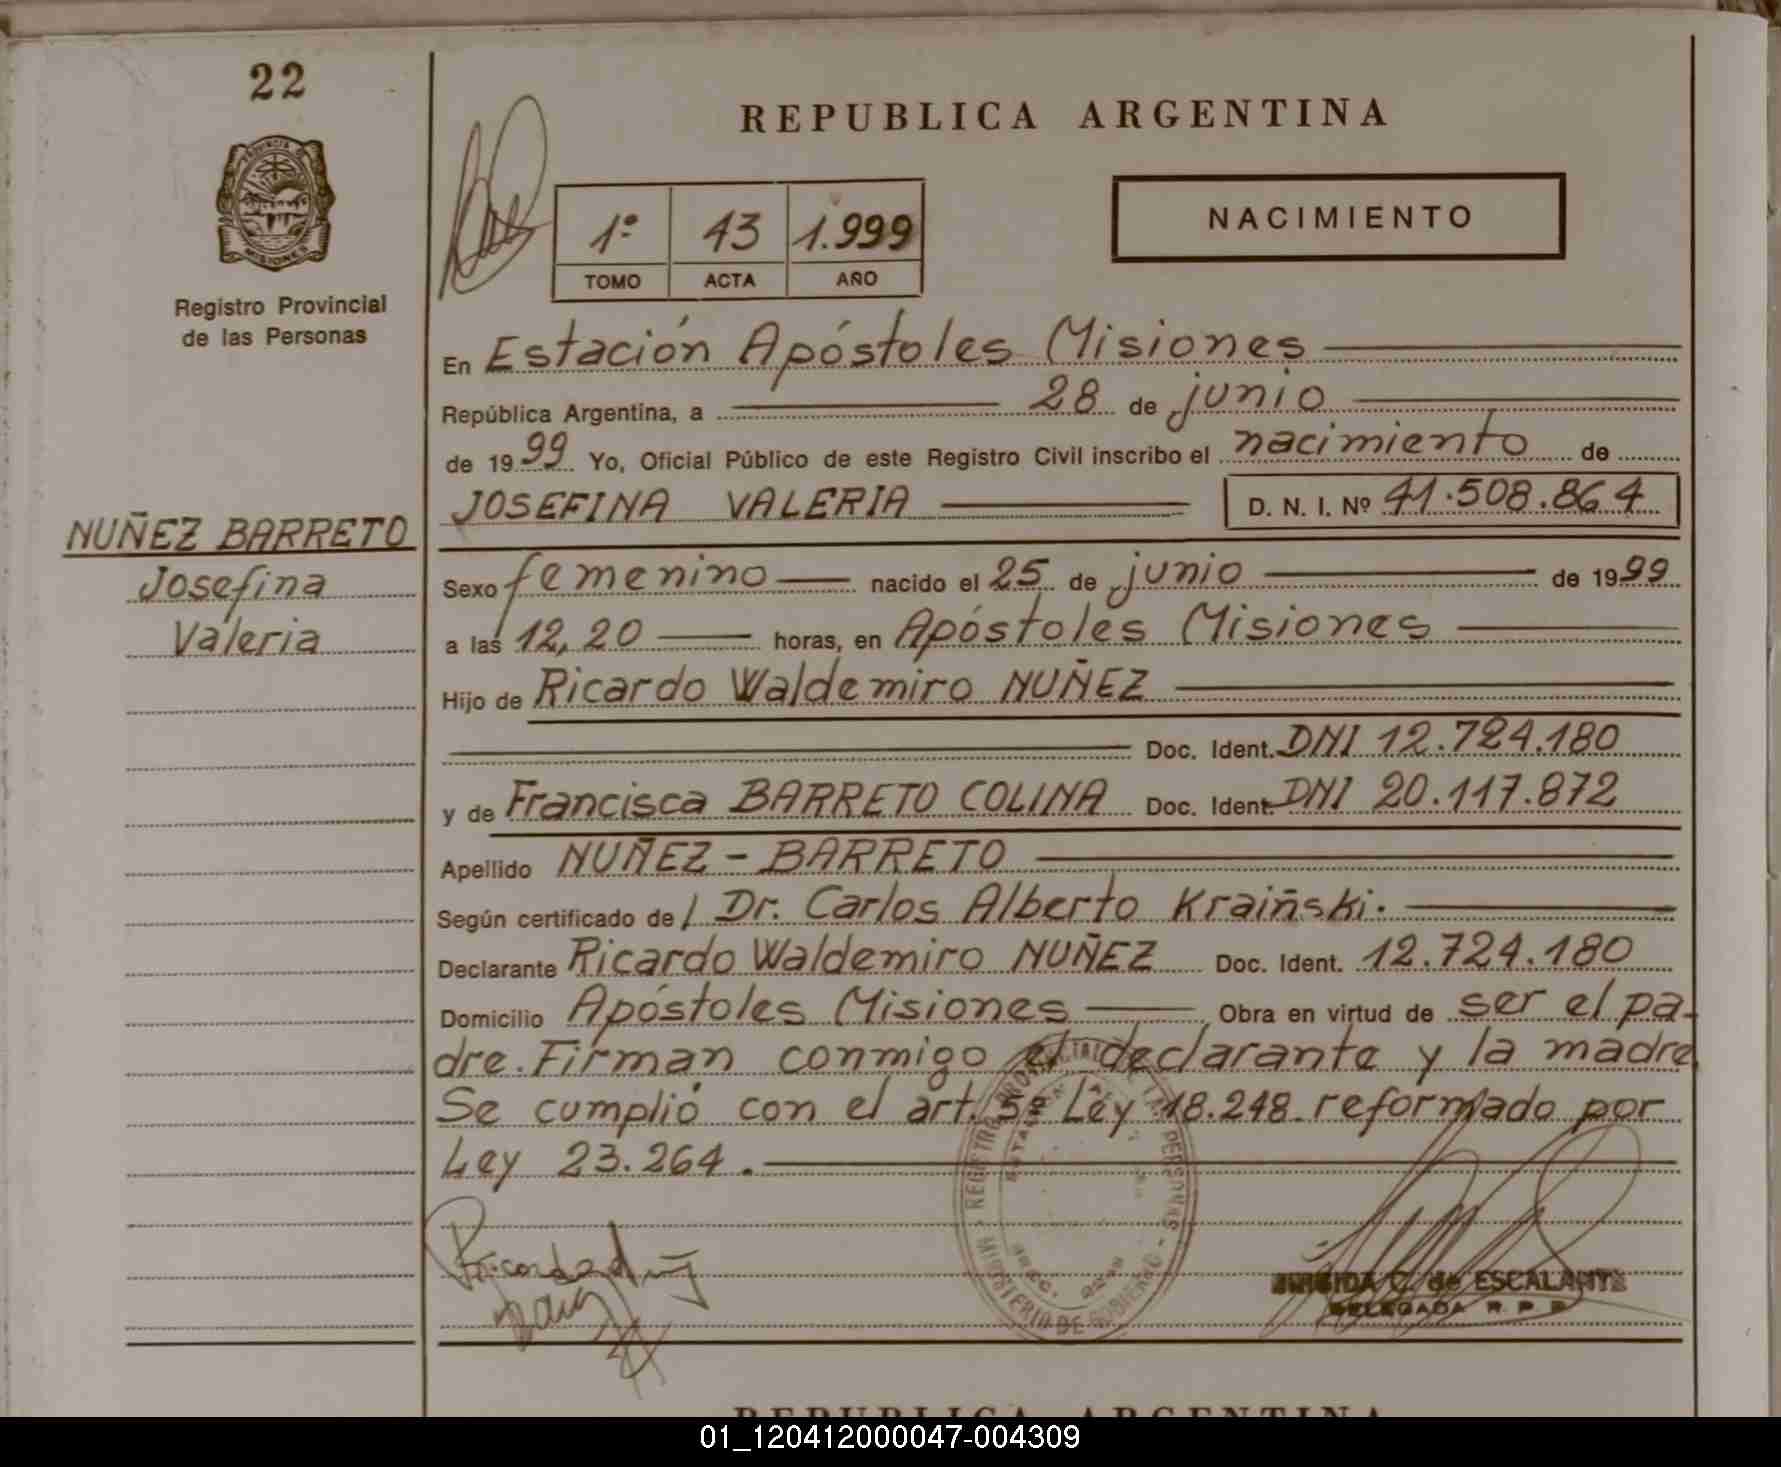 22
PROVINCIA DE
MISIONES
Registro Provincial
de las Personas
NUÑEZ BARRETO
Josefina
Valeria
REPUBLICA ARGENTINA
1º 43 1.999
TOMO ACTA AÑO
NACIMIENTO
En Estación Apóstoles Misiones
República Argentina, a 28 de junio
de 1999 Yo, Oficial Público de este Registro Civil inscribo el nacimiento de
JOSEFINA VALERIA D. N. I. Nº 41.508.864
Sexo femenino nacido el 25 de junio de 1999
a las 12,20 horas, en Apóstoles Misiones
Hijo de Ricardo Waldemiro NUÑEZ
Doc. Ident. DNI 12.724.180
y de Francisca BARRETO COLINA Doc. Ident. DNI 20.117.872
Apellido NUÑEZ - BARRETO
Según certificado de / Dr. Carlos Alberto Kraiñski.
Declarante Ricardo Waldemiro NUÑEZ Doc. Ident. 12.724.180
Domicilio Apóstoles Misiones Obra en virtud de ser el pa-
dre. Firman conmigo el declarante y la madre
Se cumplió con el art. 5º Ley 18.248 reformado por
Ley 23.264.
REGISTRO PROVINCIAL DE LAS PERSONAS - MINISTERIO DE GOBIERNO
C. de ESCALANTE
DELEGADA R. P. P.
REPUBLICA ARGENTINA
01_120412000047-004309